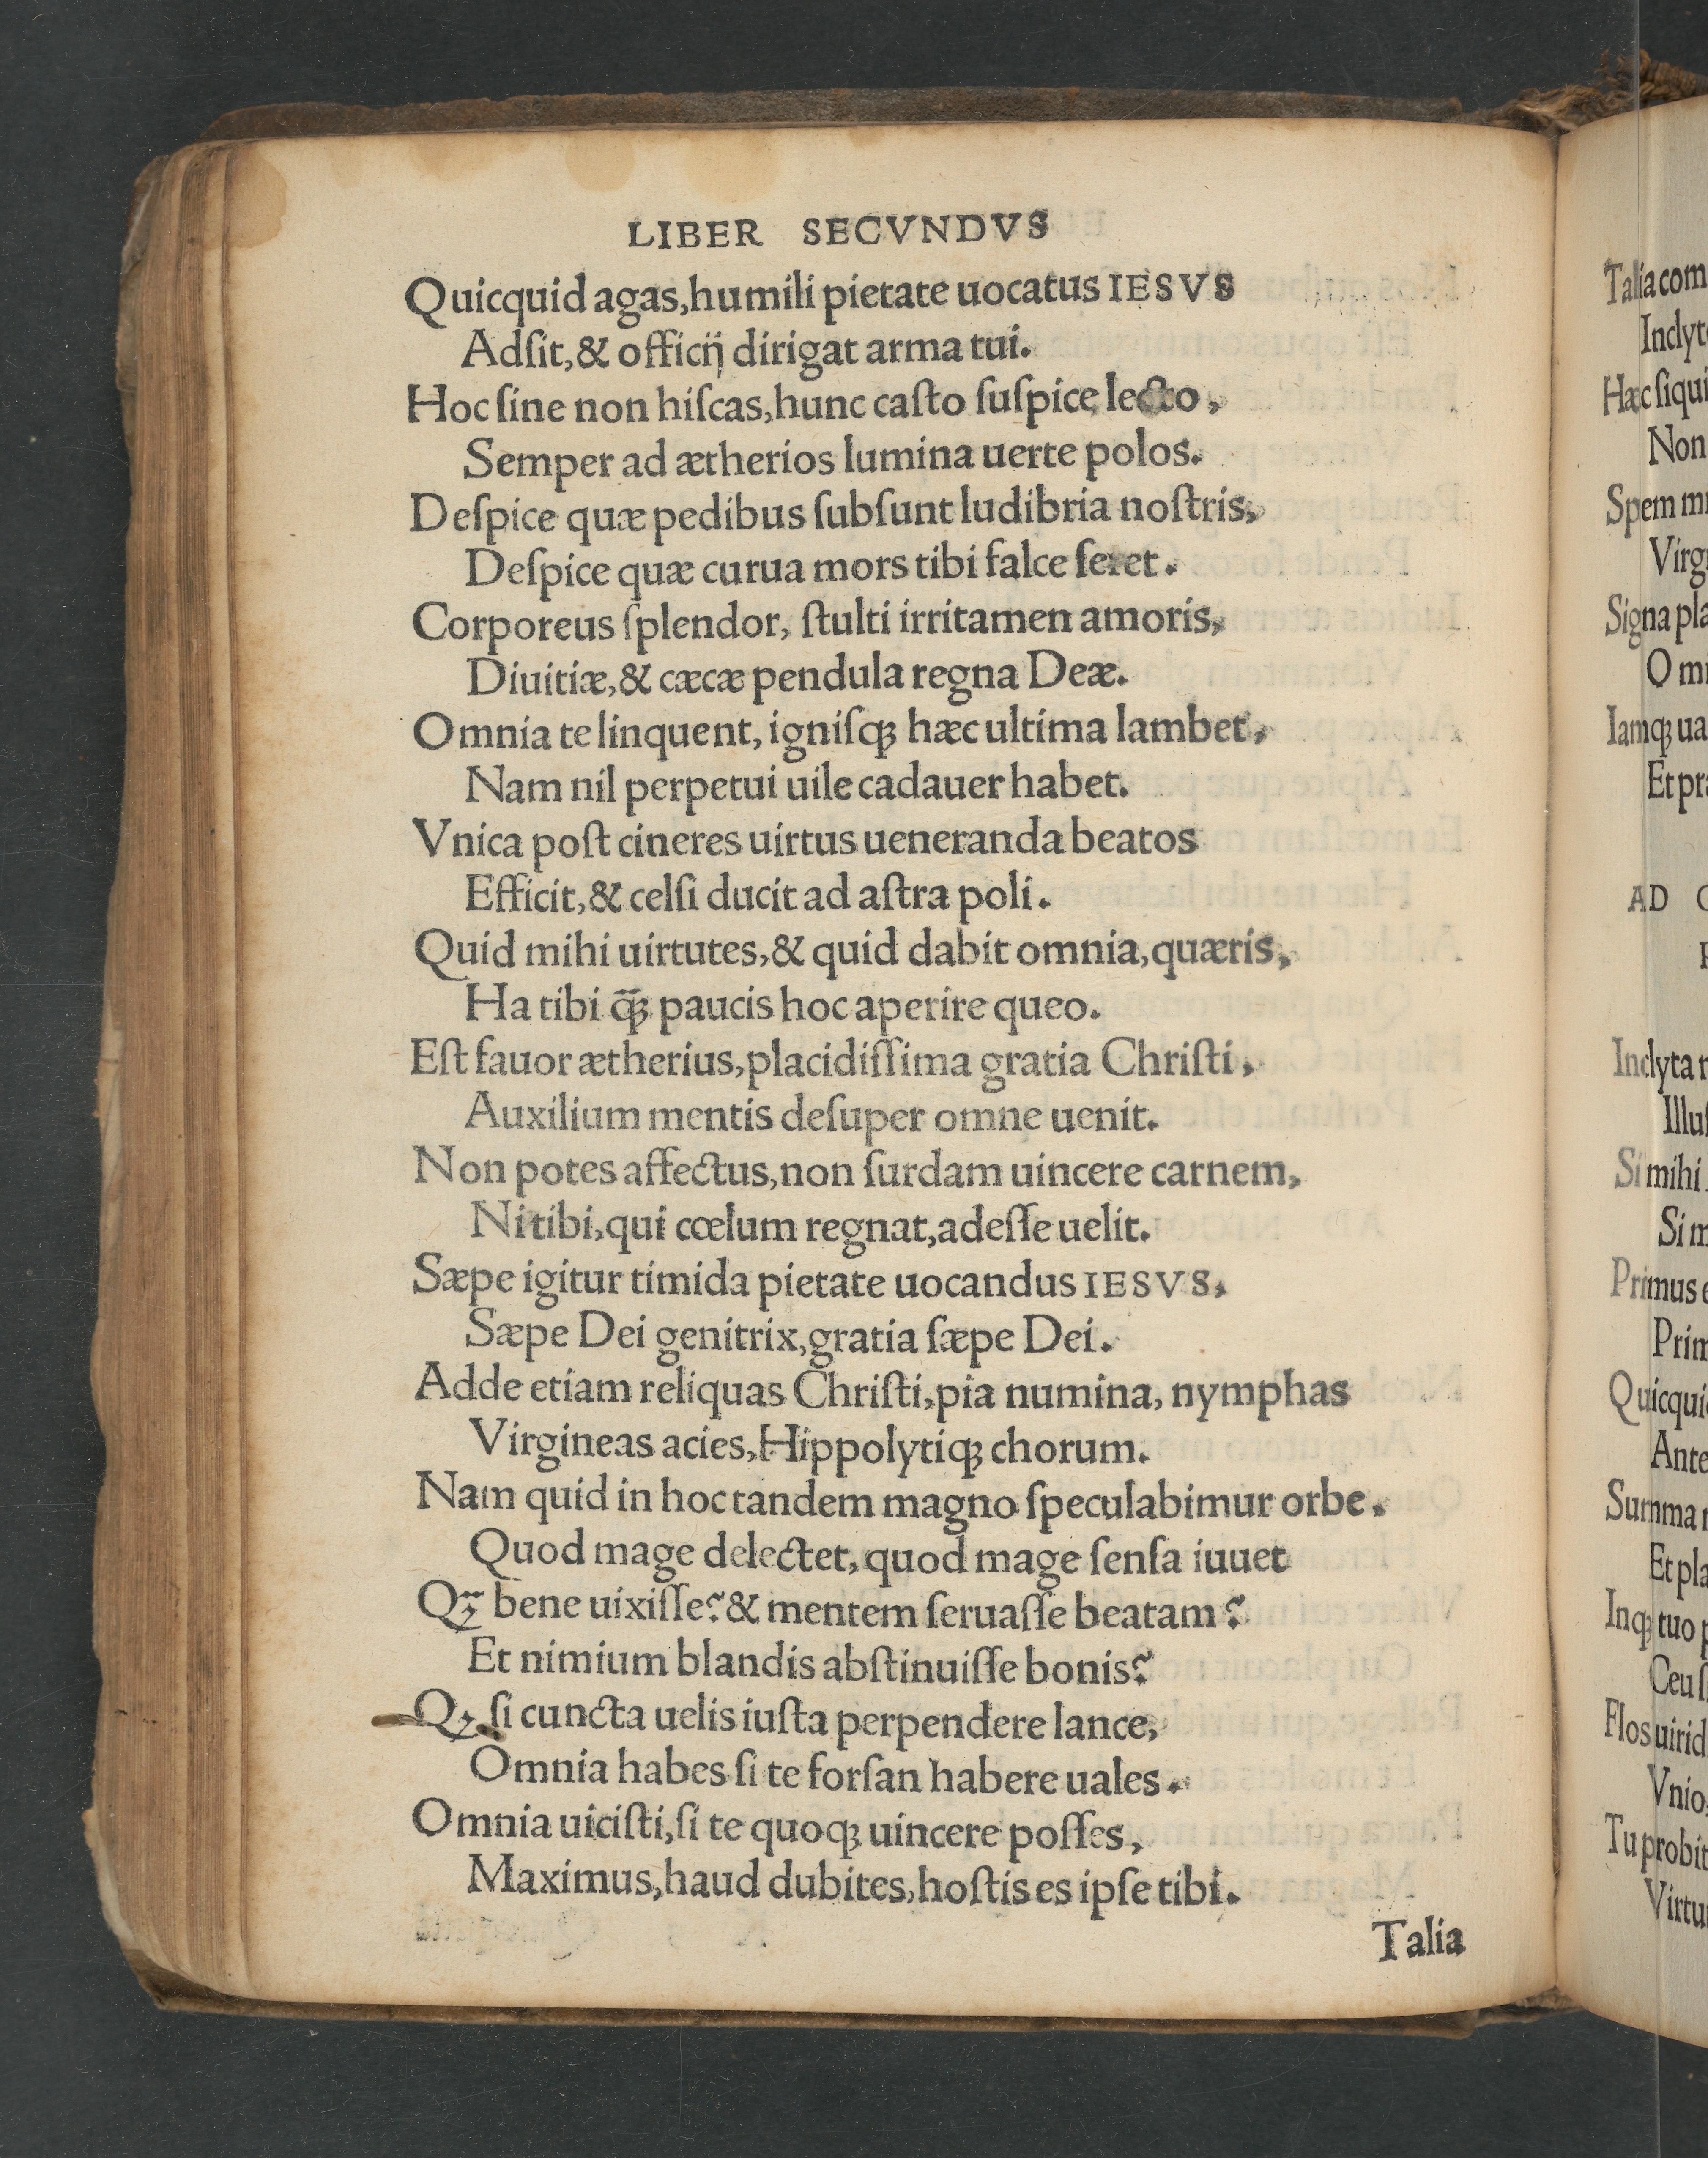 LIBER SECVNDVS
Quicquid agas,humili pietate uocatus IESVS
Adſit,& officij dirigat arma tui.
Hoc ſine non hiſcas,hunc caſto ſuſpice lecto,
Semper ad ætherios lumina uerte polos.
Deſpice quæ pedibus ſubſunt ludibria noſtris,
Deſpice quæ curua mors tibi falce feret.
Corporeus ſplendor, ſtulti irritamen amoris,
Diuitiæ,& cæcæ pendula regna Deæ.
Omnia te linquent, igniſꝗ hæc ultima lambet,
Nam nil perpetui uile cadauer habet.
Vnica poſt cineres uirtus ueneranda beatos
Efficit,& celſi ducit ad aſtra poli.
Quid mihi uirtutes,& quid dabit omnia,quæris,
Ha tibi ꝗ̃ paucis hoc aperire queo.
Eſt fauor ætherius,placidiſſima gratia Chriſti,
Auxilium mentis deſuper omne uenit.
Non potes affectus,non ſurdam uincere carnem,
Ni tibi,qui cœlum regnat,adeſſe uelit.
Sæpe igitur timida pietate uocandus IESVS,
Sæpe Dei genitrix,gratia ſæpe Dei.
Adde etiam reliquas Chriſti,pia numina, nymphas
Virgineas acies,Hippolytiꝗ chorum.
Nam quid in hoc tandem magno ſpeculabimur orbe.
Quod mage delectet, quod mage ſenſa iuuet
Qꝫ̃ bene uixiſſe?& mentem ſeruaſſe beatam?
Et nimium blandis abſtinuiſſe bonis?
Qꝫ ſi cuncta uelis iuſta perpendere lance,
Omnia habes ſi te forſan habere uales.
Omnia uiciſti,ſi te quoꝗ uincere poſſes,
Maximus,haud dubites,hoſtis es ipſe tibi.
Talia
Talia com
Inclyt
Hæc ſiqui
Non
Spem
Virg
Signa pla
O mi
Iamꝗ ua
Et pr
AD
Inclyta
Illuſ
Si mihi
Si m
Primus
Prim
Quicqui
Ante
Summa
Et pla
Inꝗ tuo
Ceu
Flos uirid
Vnio,
Tu probit
Virtu